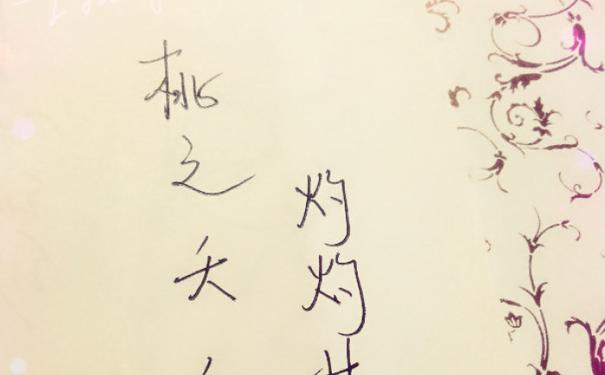 桃之夭
灼灼